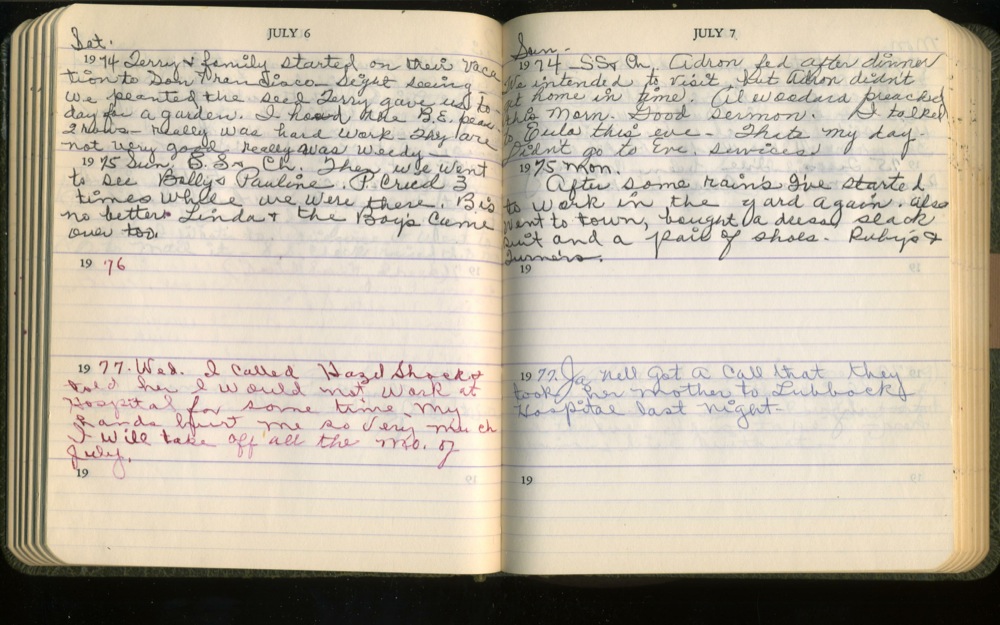 JULY 6
Sat.
1974 Terry & family started on their vaca
tion to San Fran Sisco - Sight seeing.
We peanted the seed Terry gave us to-
day for a garden. I hoed the B.E. peas
2 rows - really was hard work. They are
not very good really was weedy -
1975 Sun. S.S & Ch. Then we went
to see Billy & Pauline. P. Cried 3
times while we were there. B is
no better. Linda & the Boys Came
over too.
19 76
1977. Wed. I called Hazel Shock &
told her I would not work at
Hospital for some time. My
Hands hurt me so very much
I will take off all the mo. of
July.
19
JULY 7
Sun.
1974 SS & Ch. Adron fed after dinner
We intended to visit but Adron didn't
get home in time. Al Woodard preached
this Morn. Good Sermon. I talked
to Eula this eve - Thats my day
Didn't go to Eve. services
1975 Mon.
After some rains I've started
to work in the yard again. also
went to town, bought a dress, slack
suit and a pair of shoes. Ruby's &
Turners.
19
1977. Ja Nell Got a Call that they
took her mother to Lubbock
Hospital last night-
19